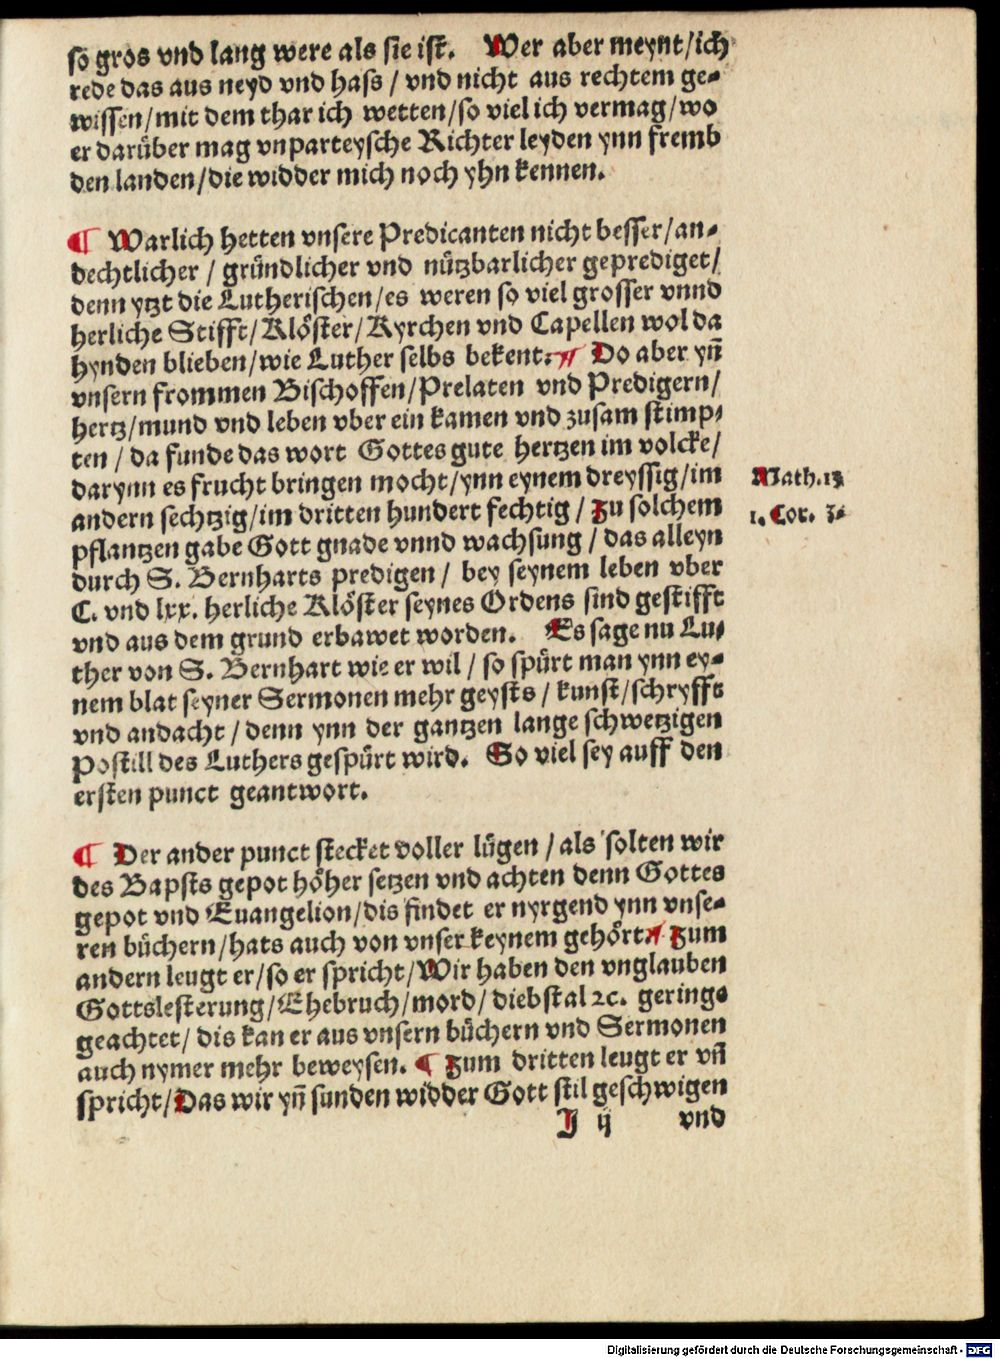 so gros vnd lang were als sie ist. Wer aber meynt/ich
rede das aus neyd vnd hass / vnd nicht aus rechtem ge-
wissen/mit dem thar ich wetten/so viel ich vermag/wo
er darüber mag vnparteysche Richter leyden ynn fremb
den landen/die widder mich noch yhn kennen.
¶ Warlich hetten vnsere Predicanten nicht besser/an-
dechtlicher / gründlicher vnd nützbarlicher geprediget/
denn ytzt die Lutherischen/es weren so viel grosser vnnd
herliche Stifft/Klöster/Kyrchen vnd Capellen wol da
hynden blieben/wie Luther selbs bekent. ¶ Do aber yñ
vnsern frommen Bischoffen/Prelaten vnd Predigern/
hertz/mund vnd leben vber ein kamen vnd zusam stimp-
ten / da funde das wort Gottes gute hertzen im volcke/
darynn es frucht bringen mocht/ynn eynem dreyssig/im
Math.13
andern sechtzig/im dritten hundert fechtig / Zu solchem
1. Cor. 3.
pflantzen gabe Gott gnade vnnd wachsung / das alleyn
durch S. Bernharts predigen / bey seynem leben vber
C. vnd lxx. herliche Klöster seynes Ordens sind gestifft
vnd aus dem grund erbawet worden. Es sage nu Lu-
ther von S. Bernhart wie er wil / so spürt man ynn ey-
nem blat seyner Sermonen mehr geysts / kunst/schryfft
vnd andacht / denn ynn der gantzen lange schwetzigen
Postill des Luthers gespürt wird. So viel sey auff den
ersten punct geantwort.
¶ Der ander punct stecket voller lügen / als solten wir
des Bapsts gepot höher setzen vnd achten denn Gottes
gepot vnd Euangelion/dis findet er nyrgend ynn vnse-
ren büchern/hats auch von vnser keynem gehört. ¶ Zum
andern leugt er/so er spricht/Wir haben den vnglauben
Gottslesterung/Ehebruch/mord/diebstal ꝛc. gering-
geachtet/ dis kan er aus vnsern büchern vnd Sermonen
auch nymer mehr beweysen. ¶ Zum dritten leugt er vñ
spricht/Das wir yñ sunden widder Gott stil geschwigen
J ij vnd
Digitalisierung gefördert durch die Deutsche Forschungsgemeinschaft - DFG